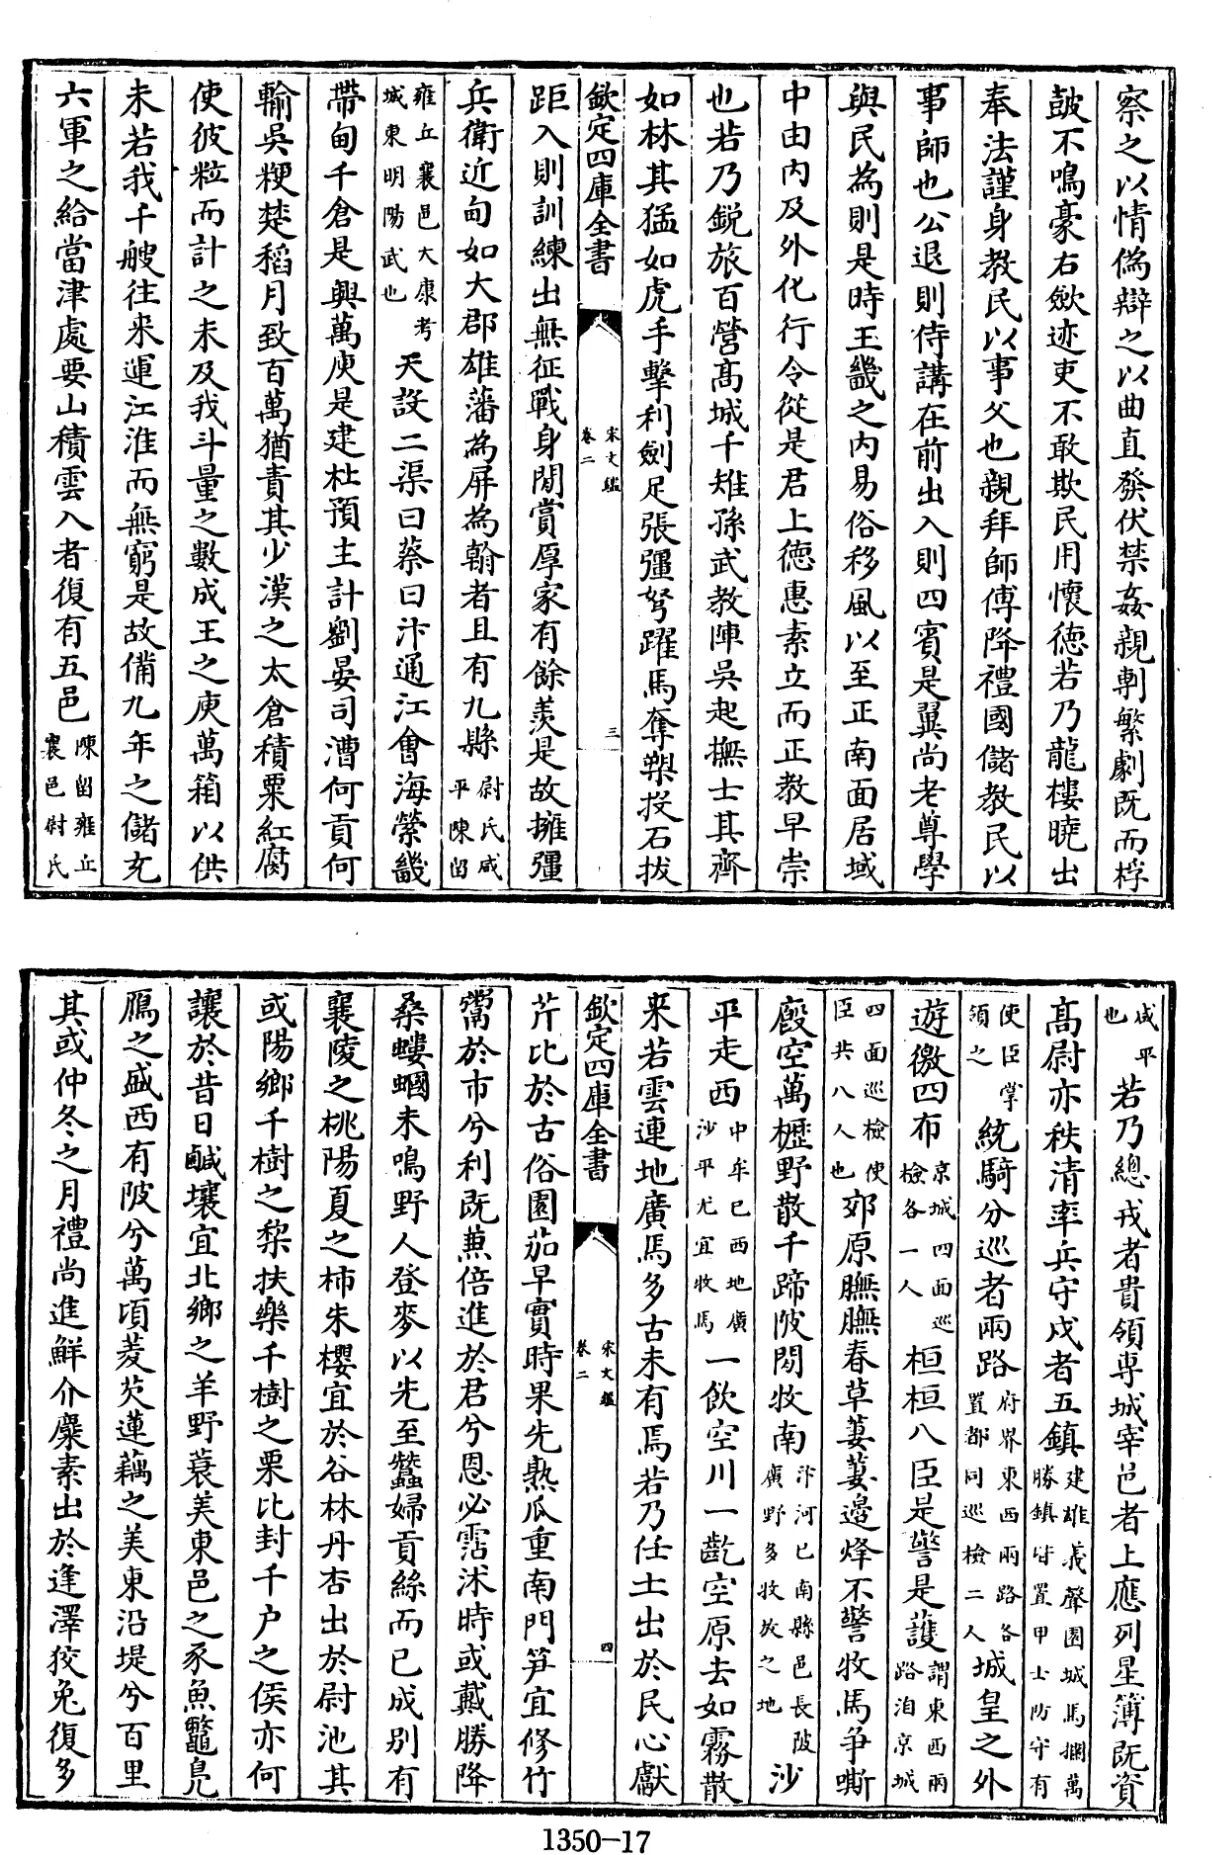 察之以情偽辯之以曲直發伏禁姦親剸繁劇既而桴
鼓不鳴豪右斂迹吏不敢欺民用懷德若乃龍樓曉出
奉法謹身教民以事父也親拜師傅降禮國儲教民以
事師也公退則侍講在前出入則四賓是翼尚老尊學
與民為則是時王畿之内易俗移風以至正南面居域
中由内及外化行令從是君上德惠素立而正教早崇
也若乃銳旅百營髙城千雉孫武教陣吳起撫士其齊
如林其猛如虎手擊利劍足張彊弩躍馬奪槊投石拔
欽定四庫全書
宋文鑑
卷二
三
距入則訓練出無征戰身閒賞厚家有餘羨是故擁彊
兵衛近甸如大郡雄藩為屏為翰者且有九縣尉氏咸平陳留
雍丘襄邑大康考城東明陽武也天設二渠曰蔡曰汴通江會海縈畿
帶甸千倉是興萬庾是建杜預主計劉晏司漕何貢何
輸吳粳楚稻月致百萬猶責其少漢之太倉積粟紅腐
使彼粒而計之未及我斗量之數成王之庾萬箱以供
未若我千艘往来運江淮而無窮是故備九年之儲充
六軍之給當津處要山積雲入者復有五邑陳留雍丘襄邑尉氏
咸平也若乃總戎者貴領専城宰邑者上應列星簿既資
髙尉亦秩清率兵守戍者五鎮建雄義聲圉城馬攔萬勝鎮皆置甲士防守有
使臣掌領之統騎分巡者兩路府界東西兩路各置都同巡檢二人城皇之外
遊徼四布京城四面巡檢各一人桓桓八臣是警是䕶謂東西兩路洎京城
四面巡檢使臣共八人也郊原膴膴春草萋萋邉烽不警牧馬爭嘶
廏空萬櫪野散千蹄陂閒牧南汴河已南縣邑長陂廣野多牧放之地沙
平走西中牟已西地廣沙平尤宜牧馬一飲空川一齕空原去如霧散
来若雲連地廣馬多古未有焉若乃任土出於民心獻
欽定四庫全書
宋文鑑
卷二
四
芹比於古俗園茄早實時果先熟瓜重南門笋宜修竹
鬻於市兮利既兼倍進於君兮恩必霑沐時或戴勝降
桑螻蟈未鳴野人登麥以先至蠶婦貢絲而已成别有
襄陵之桃陽夏之柿朱櫻宜於谷林丹杏出於尉池其
或陽鄉千樹之棃扶樂千樹之栗比封千户之侯亦何
讓於昔日鹹壤宜北鄉之羊野蓑美東邑之豕魚鼈鳧
鴈之盛西有陂兮萬頃菱芡蓮藕之美東沿堤兮百里
其或仲冬之月禮尚進鮮介麋素出於逢澤狡兔復多
1350-17